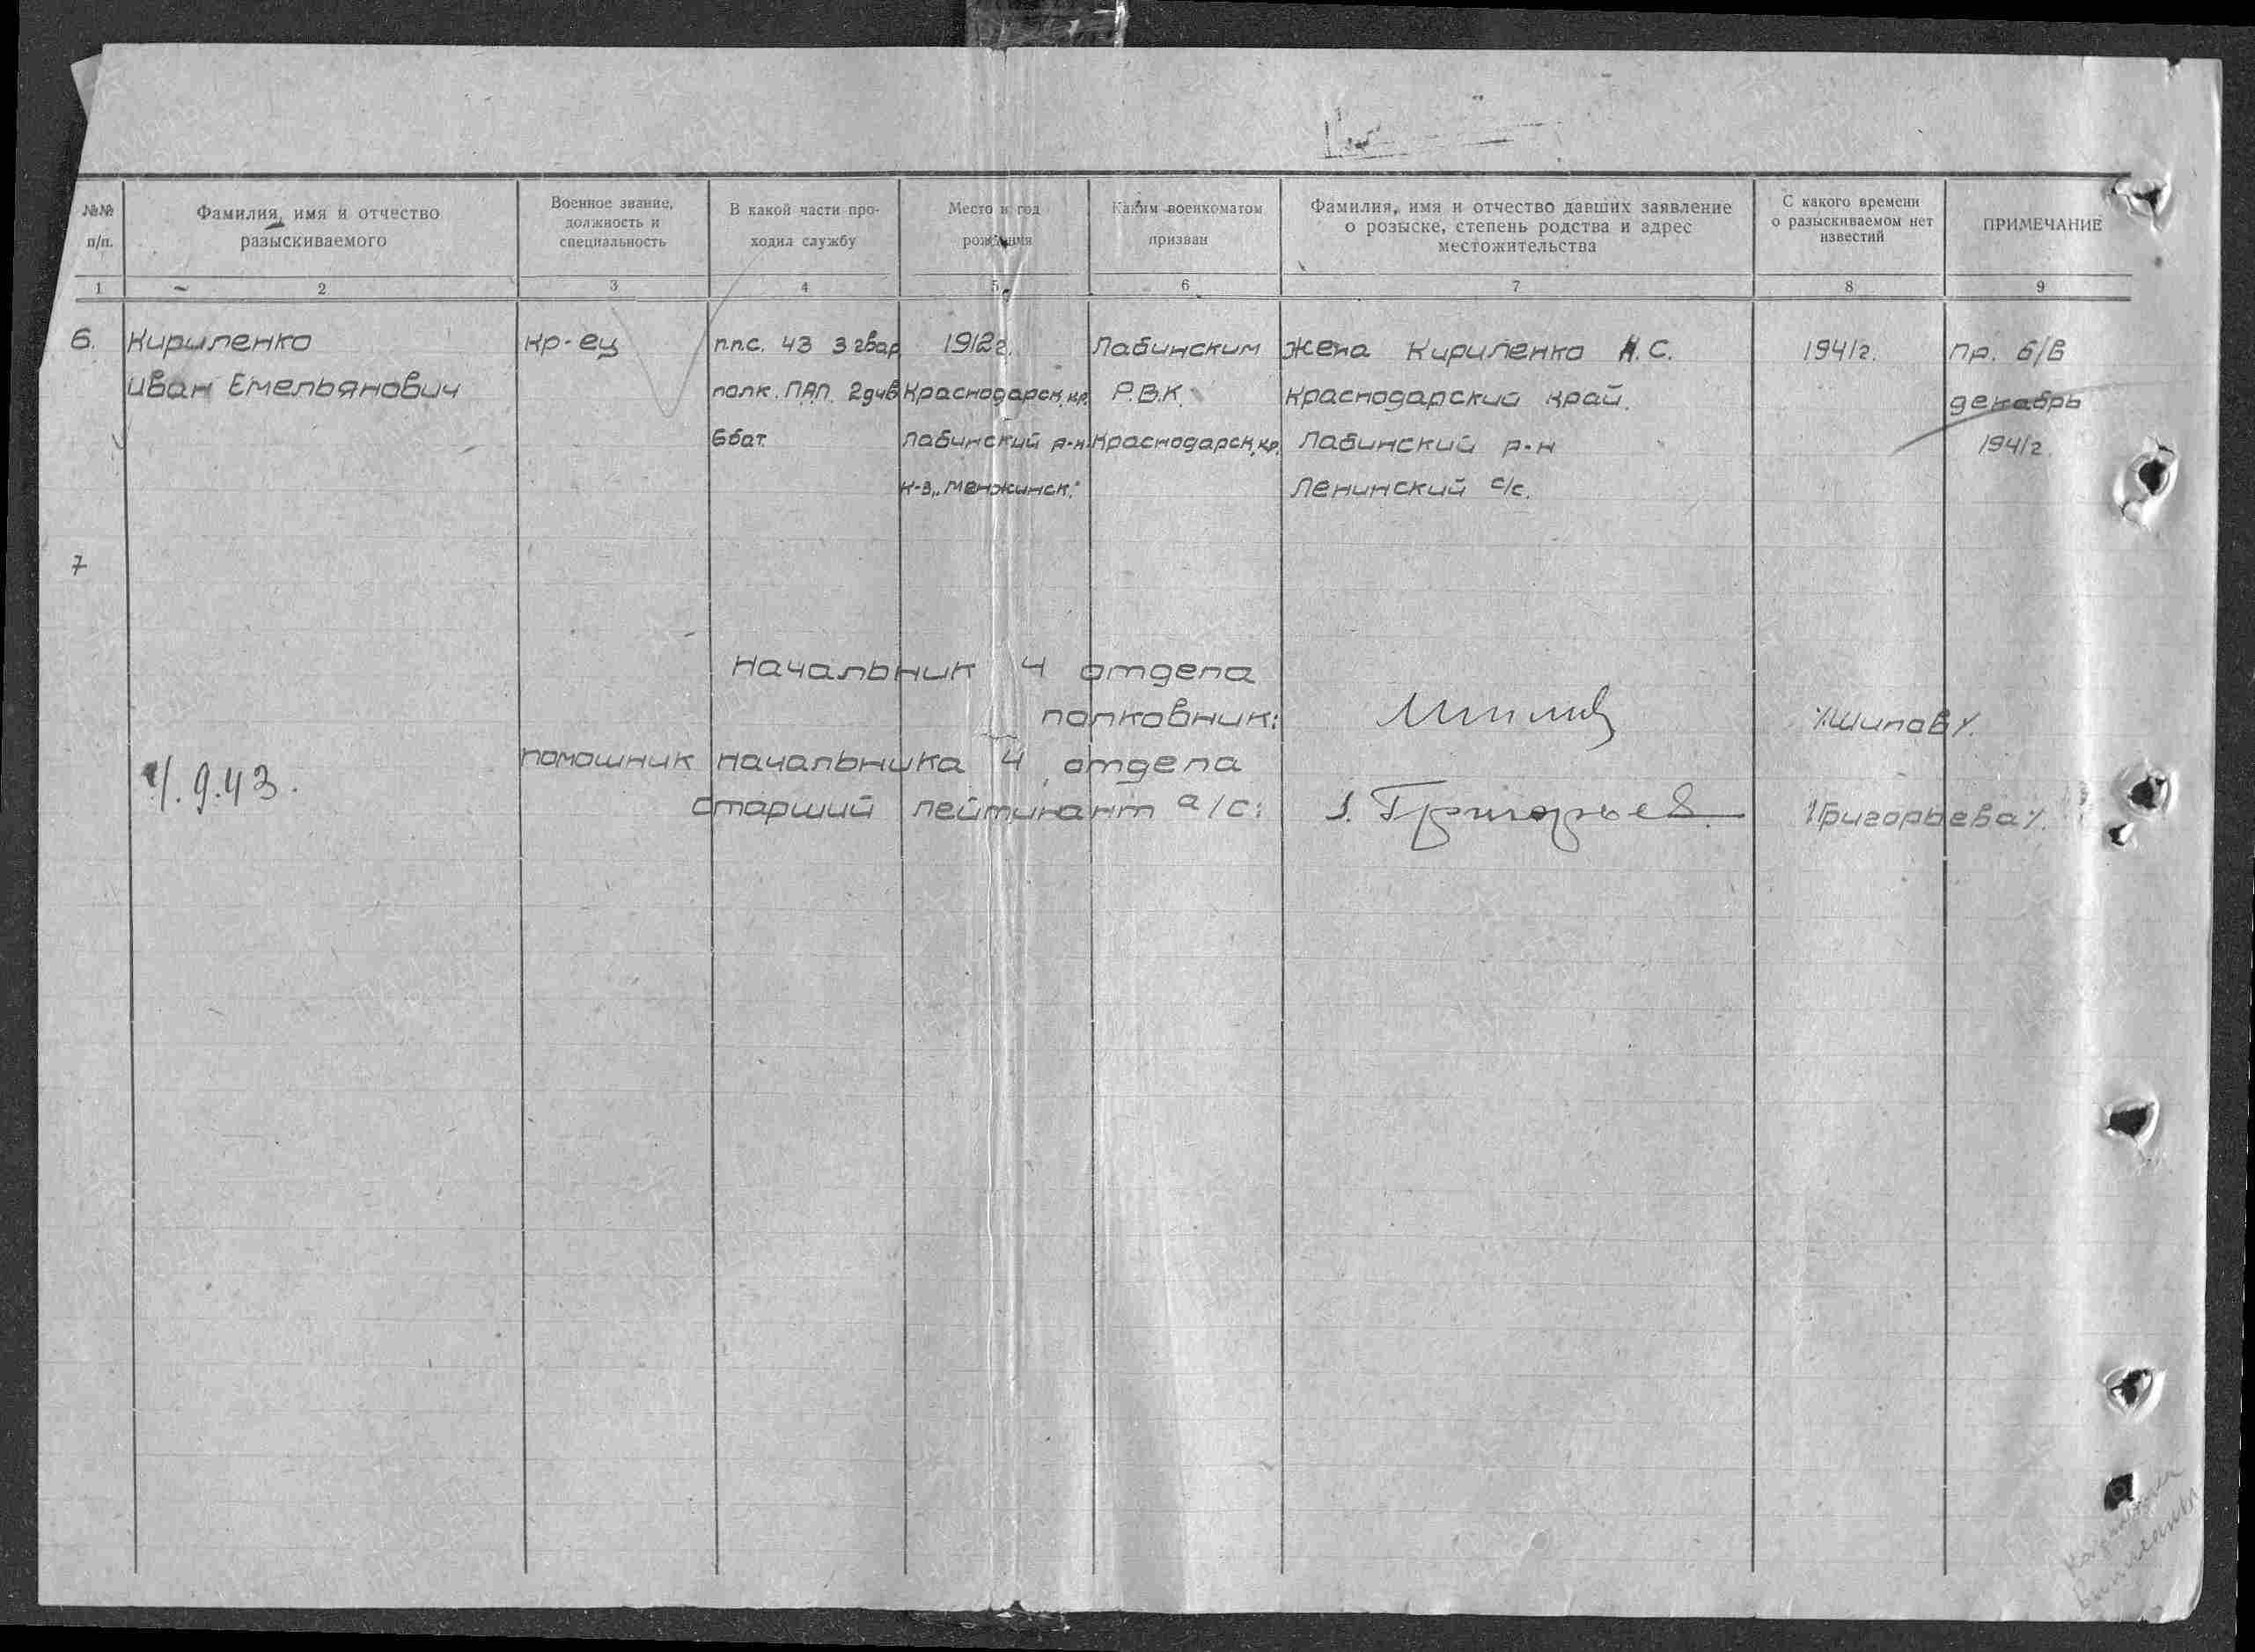 №№ п/п.
Фамилия, имя и отчество разыскиваемого
Военное звание, должность и специальность
В какой части проходил службу
Место и год рождения
Каким военкоматом призван
Фамилия, имя и отчество давших заявление о розыске, степень родства и адрес местожительства
С какого времени о разыскиваемом нет известий
ПРИМЕЧАНИЕ
1 2 3 4 5 6 7 8 9
6. Кириленко кр-ец п.п.с. 43 3 гвар 1912г. Лабинским жена Кириленко Н.С. 1941г. пр. б/в
Иван Емельянович полк. ПАП. 2див Краснодарск.кр. Р.В.К. Краснодарский край. декабрь
6бат. Лабинский р-н Краснодарск.кр. Лабинский р-н 1941г.
к-з „Менжинск." Ленинский с/с.
7
Начальник 4 отдела
полковник: /Шипов/.
помошник начальника 4 отдела
4.9.43.
старший лейтинант а/с: Григорьев. /Григорьева/.